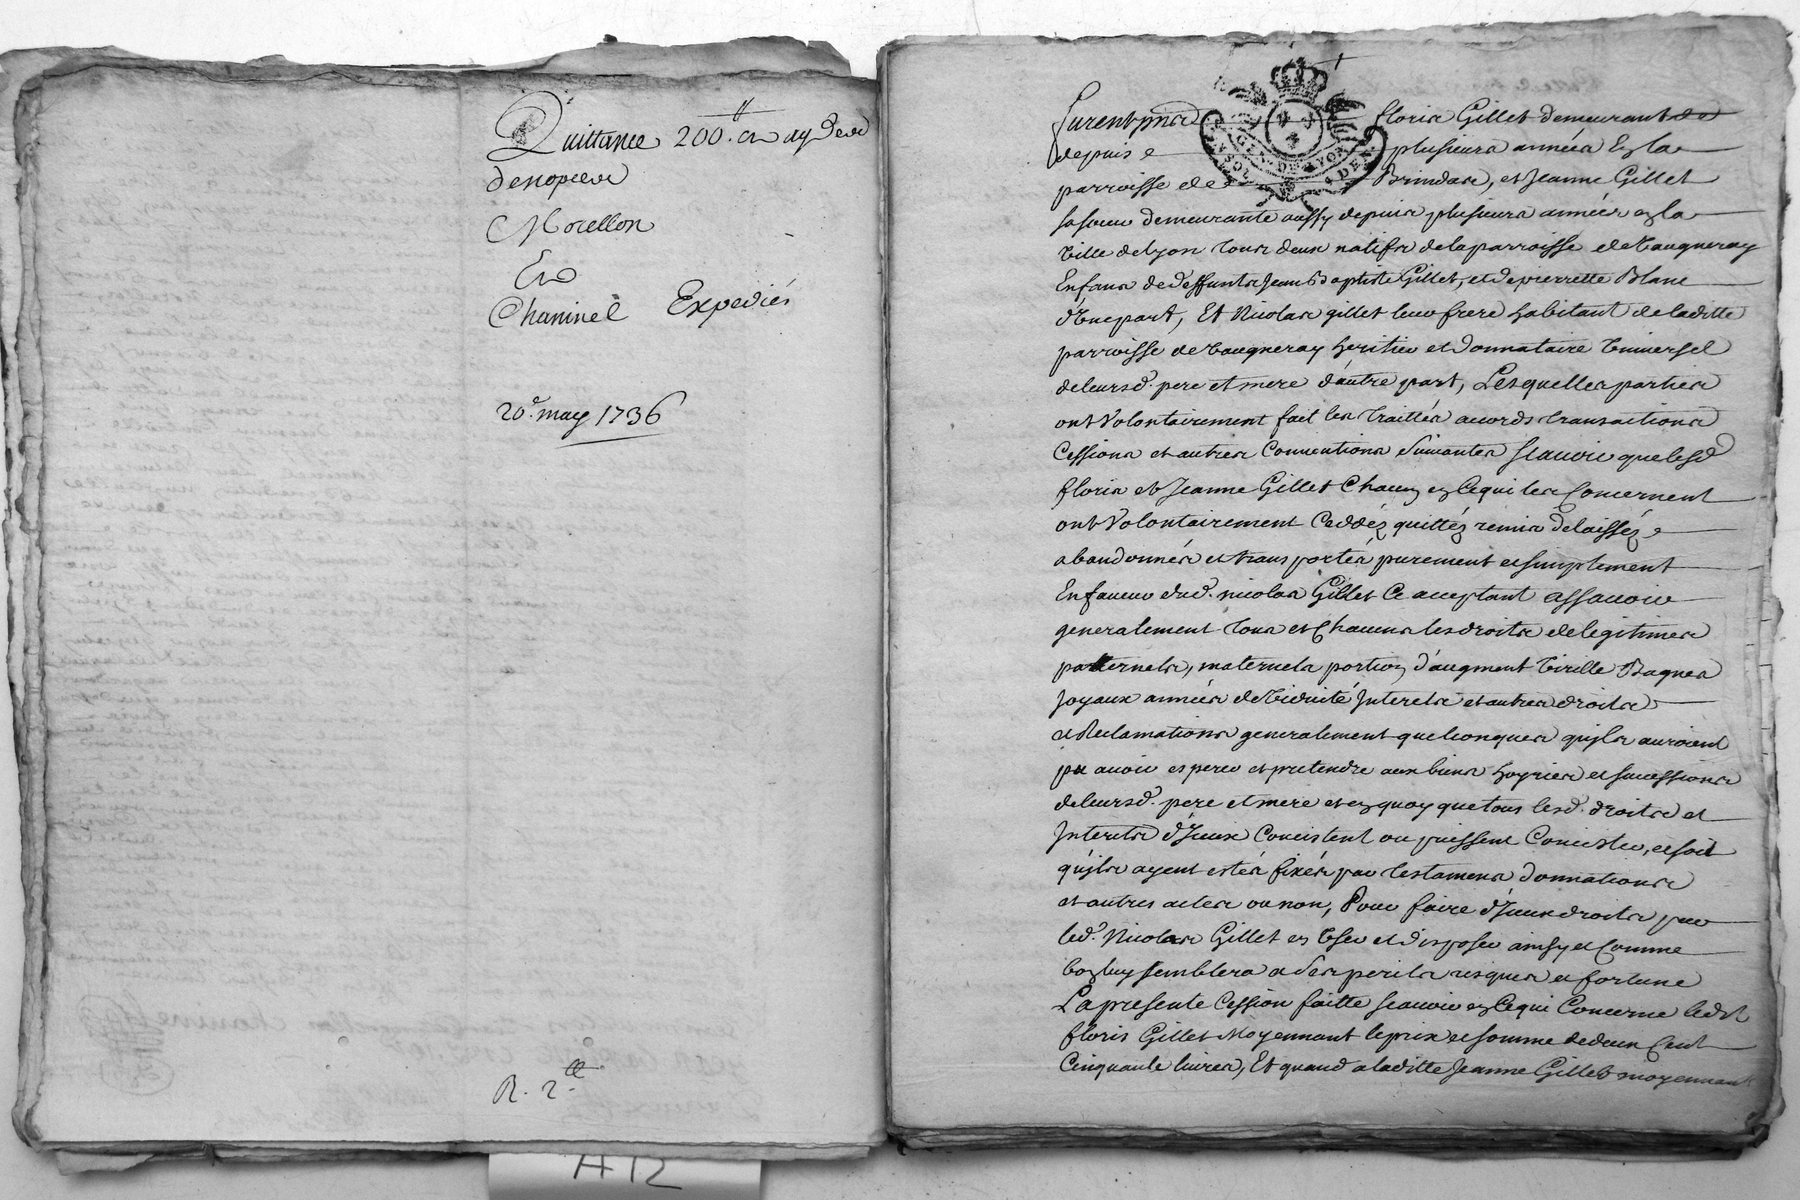 Quittance 200.ll
de nopces
Morellon
Et
Chaninel Expediés
20e. may 1736
R. 2.ll
A12
GEN. DE LYON
Furent pnts floris Gillet demeurant
depuis plusieurs années en la
parroisse de Brindas, et Jeanne Gillet
sa soeur demeurante aussy depuis plusieurs années en la
Ville de Lyon tous deux natifs de la parroisse de Vaugneray
Enfans de deffunts Jean Baptiste Gillet, et de pierrette Blanc
d'Une part, Et Nicolas gillet leur frere habitant de laditte
parroisse de Vaugneray heritier et donnataire Universel
de leursd. pere et mere d'autre part, Lesquelles parties
ont Volontairement fait les traittés accords transactions
Cessions et autres Conventions Suivantes scavoir que lesd
floris et Jeanne Gillet Chacun en ce qui les Concernent
ont Volontairement Ceddéz quittéz remis delaisséz
abandonnés et transportés purement et simplement
En faveur dud. nicolas Gillet Ce acceptant assavoir
generalement tous et Chacuns les droits de legitimes
paternels, maternels portion d'augment Virille Bagues
Joyaux années de Viduité Interets et autres droits
et Reclamations generalement quelconques qu'jls auroient
pu avoir esperer et pretendre aux biens hoyries et successions
de leursd. pere et mere et en quoy que tous lesd. droits et
Interets d'Jceux Concistent ou puissent Concister, et soit
qu'jls ayent estés fixés par testamens donnations
et autres actes ou non, Pour faire d'Jceux droits par
led. Nicolas Gillet en User et disposer ainsy et Comme
bon luy semblera a Ses perils risques et fortune
La presente Cession faitte scavoir en Ce qui Concerne ledit
floris Gillet Moyennant le prix et somme de deux Cent
Cinquante livres, Et quand a laditte Jeanne Gillet moyennant